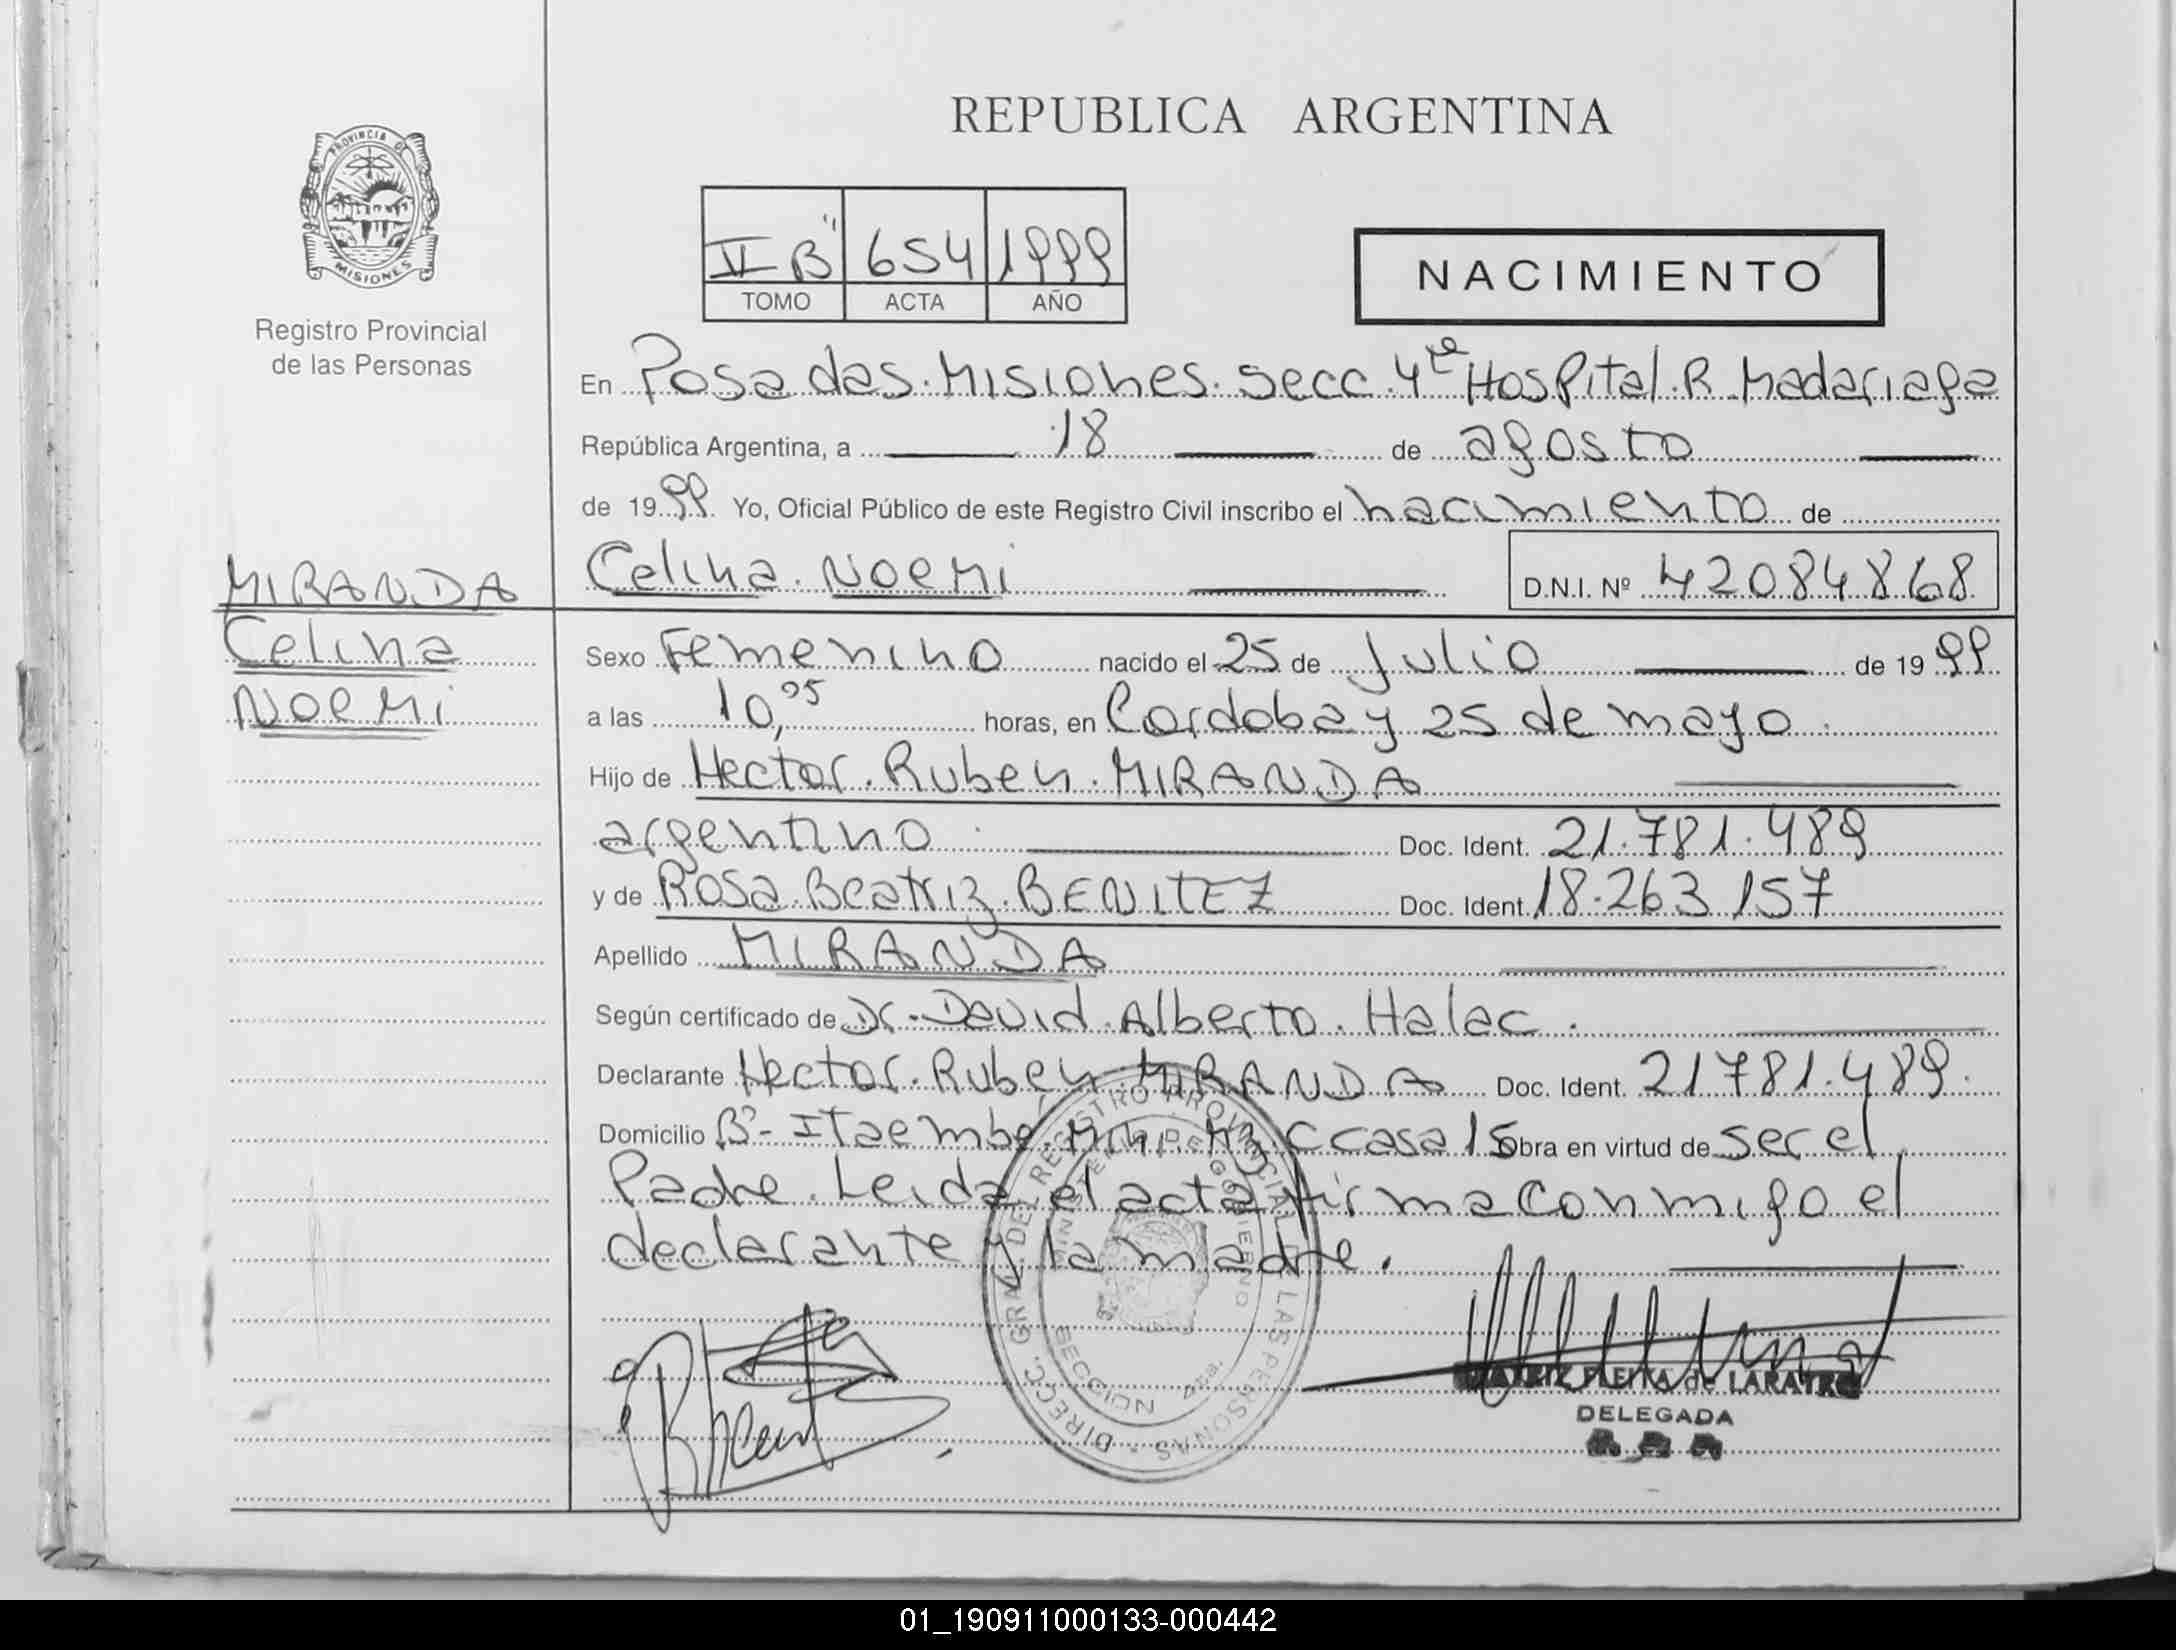 PROVINCIA DE
MISIONES
Registro Provincial
de las Personas
REPUBLICA ARGENTINA
II "B" 654 1999
TOMO ACTA AÑO
NACIMIENTO
En Posadas. Misiones. Secc. 4ta Hospital. R. Madariaga
República Argentina, a 18 de agosto
de 1999. Yo, Oficial Público de este Registro Civil inscribo el nacimiento de
MIRANDA
Celina
Noemi
Celina. Noemi D.N.I. Nº 42084868
Sexo Femenino nacido el 25 de Julio de 1999
a las 10,05 horas, en Cordoba y 25 de mayo.
Hijo de Hector. Ruben. MIRANDA
argentino. Doc. Ident. 21.781.489
y de Rosa. Beatriz. BENITEZ Doc. Ident. 18.263.157
Apellido MIRANDA
Según certificado de Dr. David. Alberto. Halac.
Declarante Hector. Ruben. MIRANDA Doc. Ident. 21781.489.
Domicilio Bº- Itaembé. Mini. Mz. C casa 15 obra en virtud de ser el
Padre. Leida el acta firma conmigo el
declarante y la madre.
DIRECC. GRAL. DEL REGISTRO PROVINCIAL DE LAS PERSONAS
MINISTERIO DE GOBIERNO
SECCION
FLEITA de
DELEGADA
01_190911000133-000442